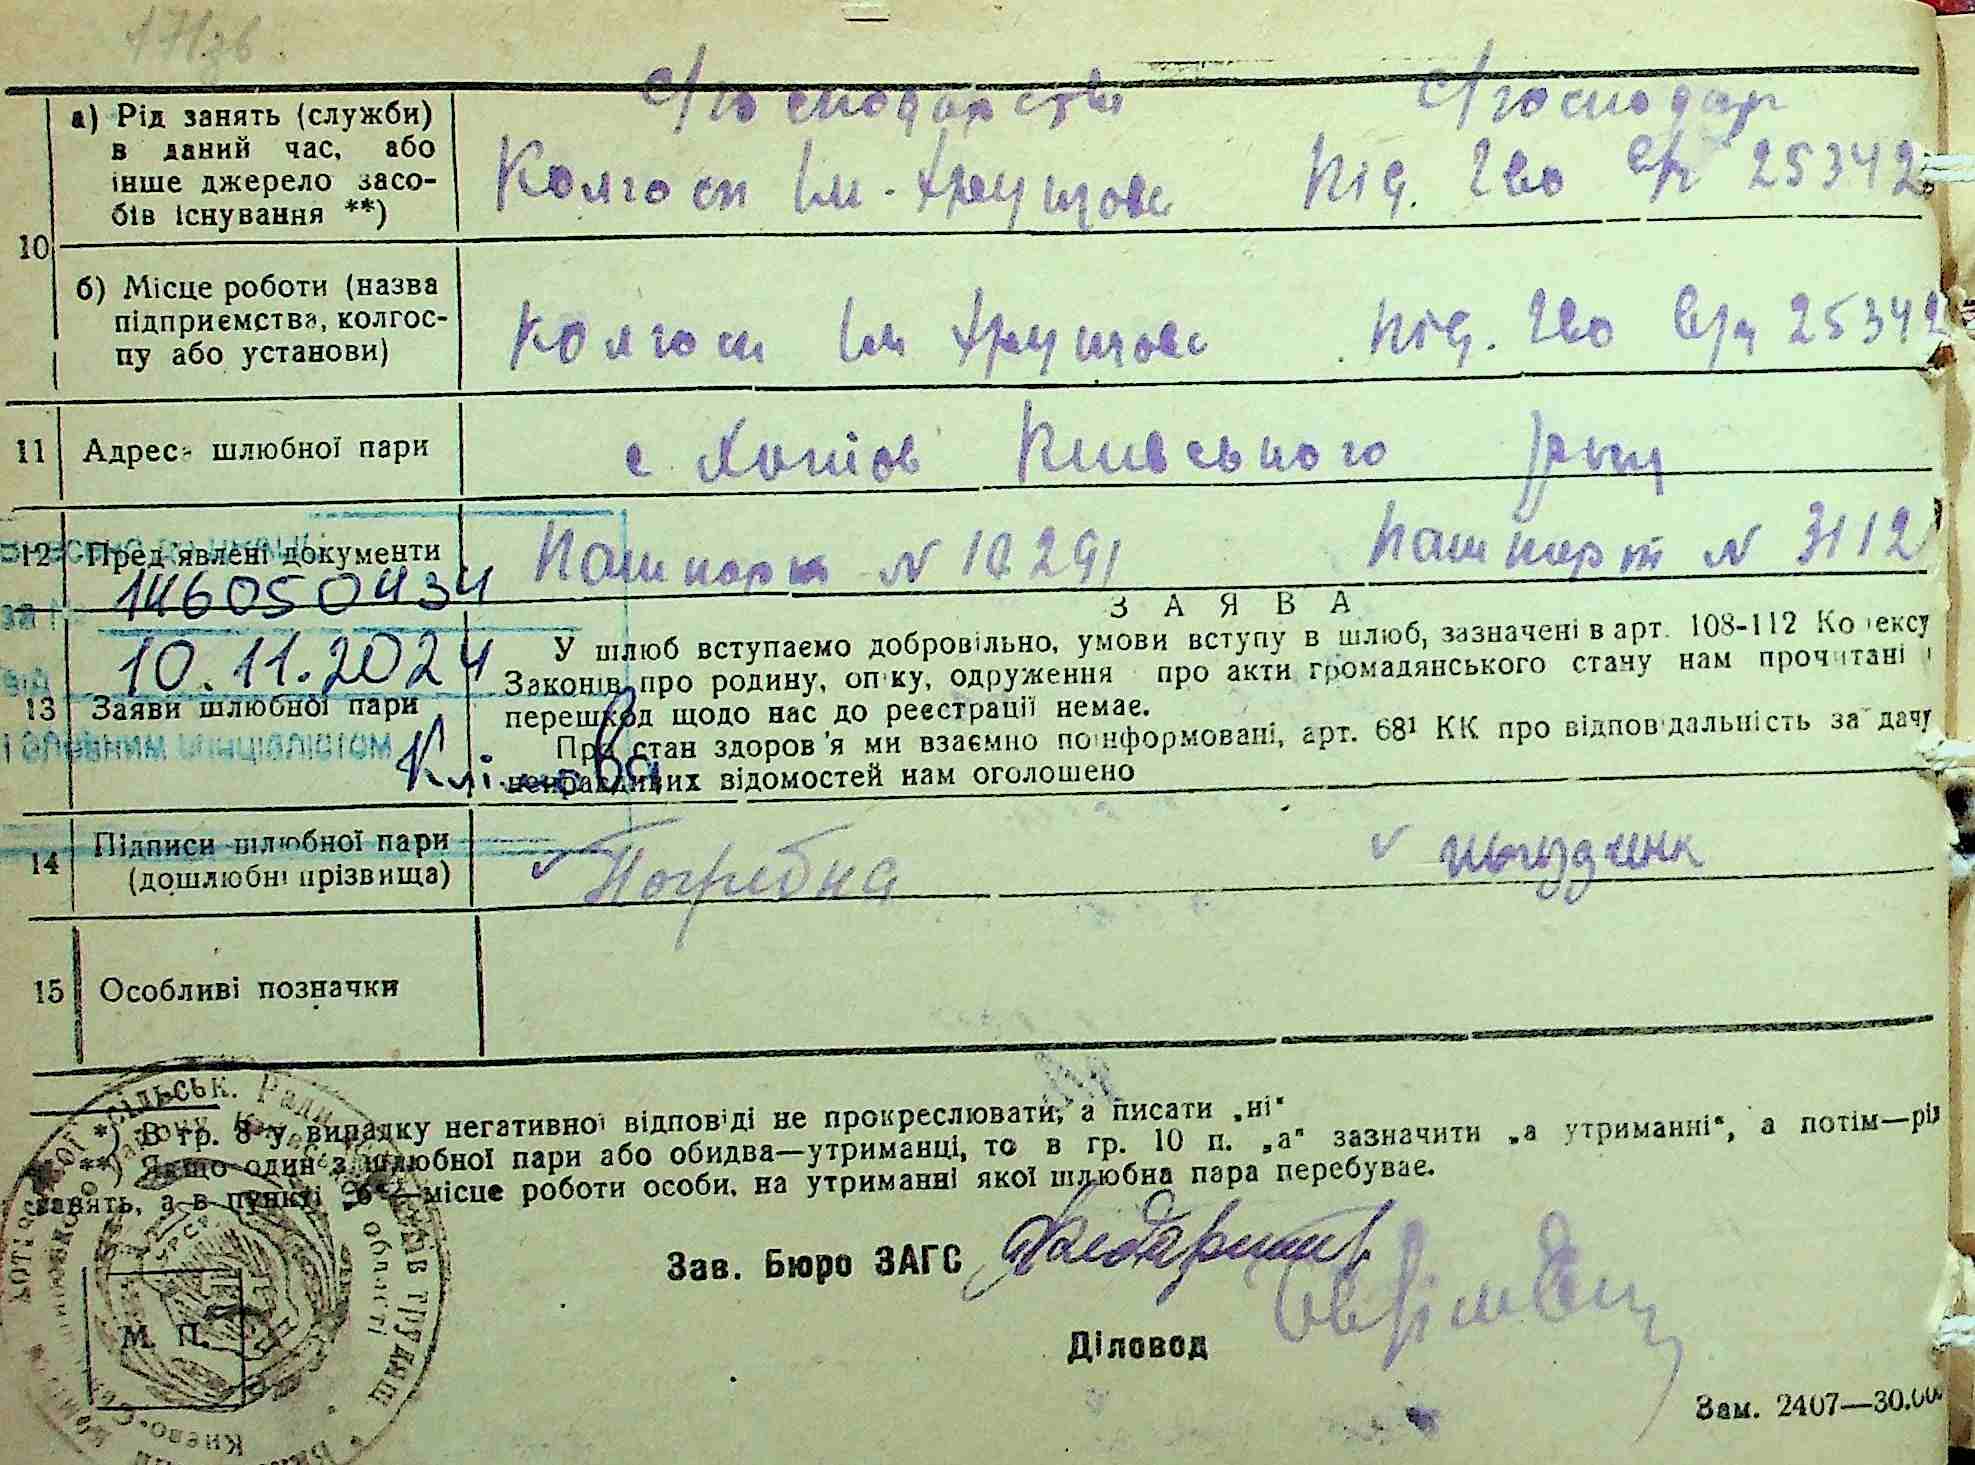 171зв.
а) Рід занять (служби) в даний час, або інше джерело засобів існування **)
С/господарство С/господар
Колгосп ім. Хрущова Під. Гво с/р 25342
10
б) Місце роботи (назва підприємства, колгоспу або установи)
Колгосп ім Хрущова Під. Гво 25342
11 Адреса шлюбної пари с. Хотів Київського р-ну
12 Пред'явлені документи Пашпорт N Пашпорт N 3112
146050434
10.11.2024
З А Я В А
13 Заяви шлюбної пари
У шлюб вступаємо добровільно, умови вступу в шлюб, зазначені в арт. 108-112 Кодексу
Законів про родину, опіку, одруження про акти громадянського стану нам прочитані і
перешкод щодо нас до реєстрації немає.
Про стан здоров'я ми взаємно поінформовані, арт. 68¹ КК про відповідальність за дачу
неправдивих відомостей нам оголошено
14 Підписи шлюбної пари (дошлюбні прізвища) Погребна
15 Особливі позначки
*) В гр. 8-у випадку негативної відповіді не прокреслювати, а писати „ні"
**) Якщо один з шлюбної пари або обидва—утриманці, то в гр. 10 п. „а" зазначити „а утриманні", а потім—рід
занять, а в пункті „б"—місце роботи особи, на утриманні якої шлюбна пара перебуває.
Зав. Бюро ЗАГС
Діловод
М. П.
Зам. 2407—30.00